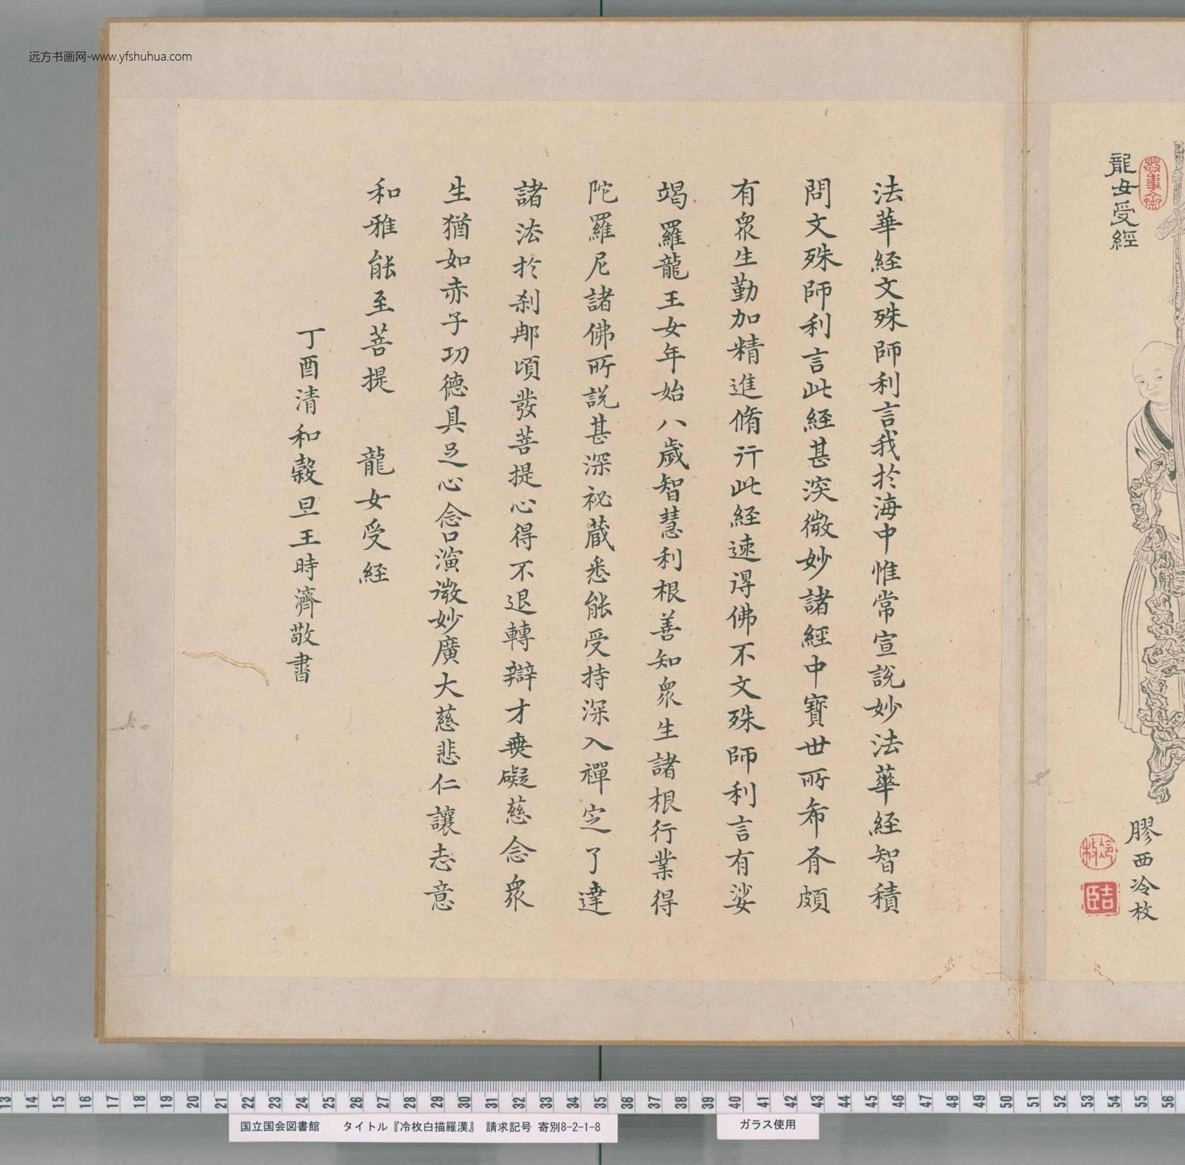 远方书画网-www.yfshuhua.com
龍女受經
膠西冷枚
冷枚
吉臣
法華經文殊師利言我於海中惟常宣說妙法華經智積
問文殊師利言此經甚深微妙諸經中寶世所希有頗
有眾生勤加精進脩行此經速得佛不文殊師利言有娑
竭羅龍王女年始八歲智慧利根善知眾生諸根行業得
陀羅尼諸佛所說甚深祕蔵悉能受持深入禪定了達
諸法於剎那頃發菩提心得不退轉辯才無礙慈念眾
生猶如赤子功德具足心念口演微妙廣大慈悲仁讓志意
和雅能至菩提 龍女受經
丁酉清和穀旦王時濟敬書
13 14 15 16 17 18 19 20 21 22 23 24 25 26 27 28 29 30 31 32 33 34 35 36 37 38 39 40 41 42 43 44 45 46 47 48 49 50 51 52 53 54 55 56
国立国会図書館 タイトル『冷枚白描羅漢』 請求記号 寄別8-2-1-8
ガラス使用